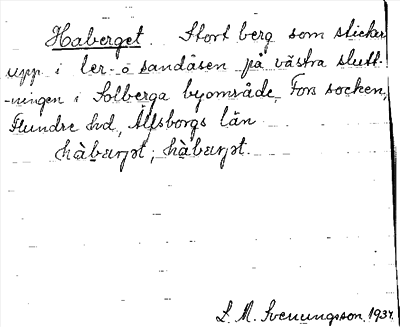 Haberget. Stort berg som sticker
upp i ler- o sandåsen på västra slutt-
-ningen i Solberga byområde, Fors socken,
Flundre hd, Älfsborgs län
hàbærjət, hàbærjət.
S. M. Svenungsson, 1934.